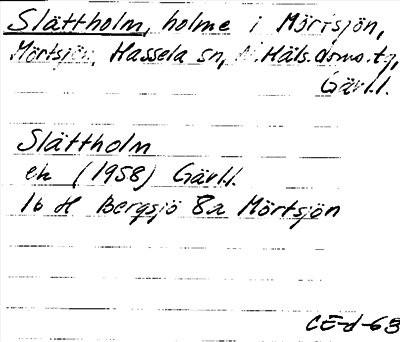 Slättholm, holme i Mörtsjön,
Mörtsjön, Hassela sn, N. Häls. doms. tg,
Gävl.l.
Slättholm
ek (1958) Gävl.l.
16 H Bergsjö 8a Mörtsjön
CE-d-63